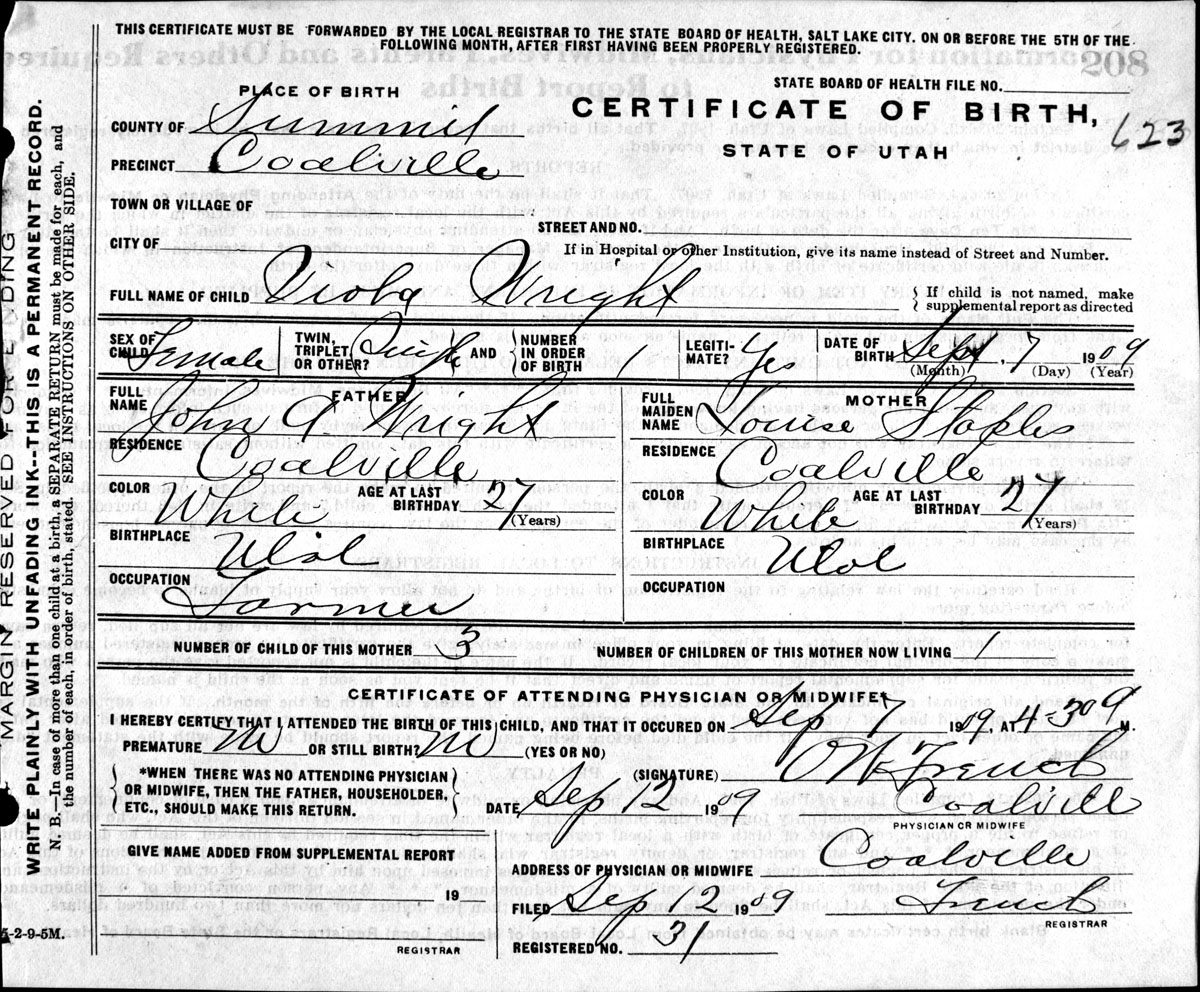 THIS CERTIFICATE MUST BE FORWARDED BY THE LOCAL REGISTRAR TO THE STATE BOARD OF HEALTH, SALT LAKE CITY. ON OR BEFORE THE 5TH OF THE
FOLLOWING MONTH, AFTER FIRST HAVING BEEN PROPERLY REGISTERED.
PLACE OF BIRTH
STATE BOARD OF HEALTH FILE NO.
COUNTY OF Summit
CERTIFICATE OF BIRTH, 623
PRECINCT Coalville
STATE OF UTAH
TOWN OR VILLAGE OF
STREET AND NO.
CITY OF
If in Hospital or other Institution, give its name instead of Street and Number.
FULL NAME OF CHILD Wright
{ If child is not named, make
supplemental report as directed
SEX OF CHILD Female
TWIN, TRIPLET, OR OTHER? Single AND NUMBER IN ORDER OF BIRTH
LEGITIMATE? Yes
DATE OF BIRTH Sept, 7 1909
(Month) (Day) (Year)
FATHER
FULL NAME John Wright
RESIDENCE Coalville
COLOR White AGE AT LAST BIRTHDAY 27 (Years)
BIRTHPLACE Utah
OCCUPATION Farmer
MOTHER
FULL MAIDEN NAME Louise Staples
RESIDENCE Coalville
COLOR White AGE AT LAST BIRTHDAY 27 (Years)
BIRTHPLACE Utah
OCCUPATION
NUMBER OF CHILD OF THIS MOTHER 3 NUMBER OF CHILDREN OF THIS MOTHER NOW LIVING 1
CERTIFICATE OF ATTENDING PHYSICIAN OR MIDWIFE*
I HEREBY CERTIFY THAT I ATTENDED THE BIRTH OF THIS CHILD, AND THAT IT OCCURED ON Sep 7 1909, 4:30 M.
PREMATURE No OR STILL BIRTH? No (YES OR NO)
{ *WHEN THERE WAS NO ATTENDING PHYSICIAN
OR MIDWIFE, THEN THE FATHER, HOUSEHOLDER,
ETC., SHOULD MAKE THIS RETURN }
(SIGNATURE) French
DATE Sep 1909 Coalville
PHYSICIAN OR MIDWIFE
GIVE NAME ADDED FROM SUPPLEMENTAL REPORT
ADDRESS OF PHYSICIAN OR MIDWIFE Coalville
19
FILED Sep 1909 French
REGISTRAR
REGISTERED NO. 31
REGISTRAR
5-2-9-5M.
MARGIN RESERVED FOR BINDING
WRITE PLAINLY WITH UNFADING INK--THIS IS A PERMANENT RECORD.
N. B.—In case of more than one child at a birth, a SEPARATE RETURN must be made for each, and
the number of each, in order of birth, stated. SEE INSTRUCTIONS ON OTHER SIDE.